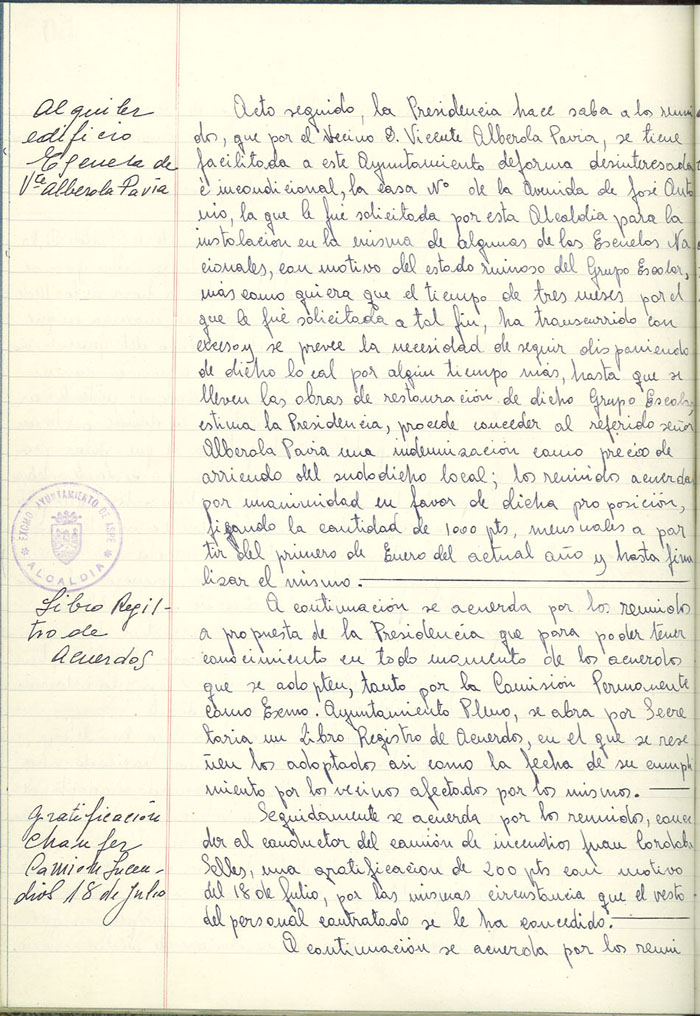 Alquiler
edificio
Escuela de
Vte Alberola Pavía
Acto seguido, la Presidencia hace saba a los reuni
dos, que por el Vecino D. Vicente Alberola Pavia, se tiene
facilitada a este Ayuntamiento deforma desinteresada
e incondicional, la casa Nº de la Avenida de José Anto
nio, la que le fué solicitada por esta Alcaldia para la
instalacion en la misma de algunas de las Escuelas Na
cionales, con motivo del estado ruinoso del Grupo Escolar,
más como quiera que el tiempo de tres meses por el
que le fué solicitada a tal fin, ha transcurrido con
exceso y se prevee la necesidad de seguir disponiendo
de dicho local por algún tiempo más, hasta que se
lleven las obras de restauración de dicho Grupo Escolar,
estima la Presidencia, procede conceder al referido señor
Alberola Pavia una indemnización como precio de
arriendo del susodicho local; los reunidos acuerda
por unanimidad en favor de dicha proposición,
figando la cantidad de 1000 pts, mensuales a par
tir del primero de Enero del actual año y hasta fina
lizar el mismo.
EXCMO. AYUNTAMIENTO DE ASPE
* ALCALDIA *
Libro Regis-
tro de
Acuerdos
A continuación se acuerda por los reunidos
a propuesta de la Presidencia que para poder tener
conocimiento en todo momento de los acuerdos
que se adopten, tanto por la Comisión Permanente
como Exmo. Ayuntamiento Pleno, se abra por Secre
taria un Libro Registro de Acuerdos, en el que se rese
ñen los adoptados asi como la fecha de su cumpli
miento por los vecinos afectados por los mismos.
gratificación
Chaufer
Camión Incen-
dios 18 de Julio
Seguidamente se acuerda por los reunidos, conce
der al conductor del camión de incendios Juan Cordoba
Selles, una gratificacion de 200 pts con motivo
del 18 de Julio, por las mismas circustancia que el resto
del personal contratado se le ha concedido.
A continuación se acuerda por los reuni